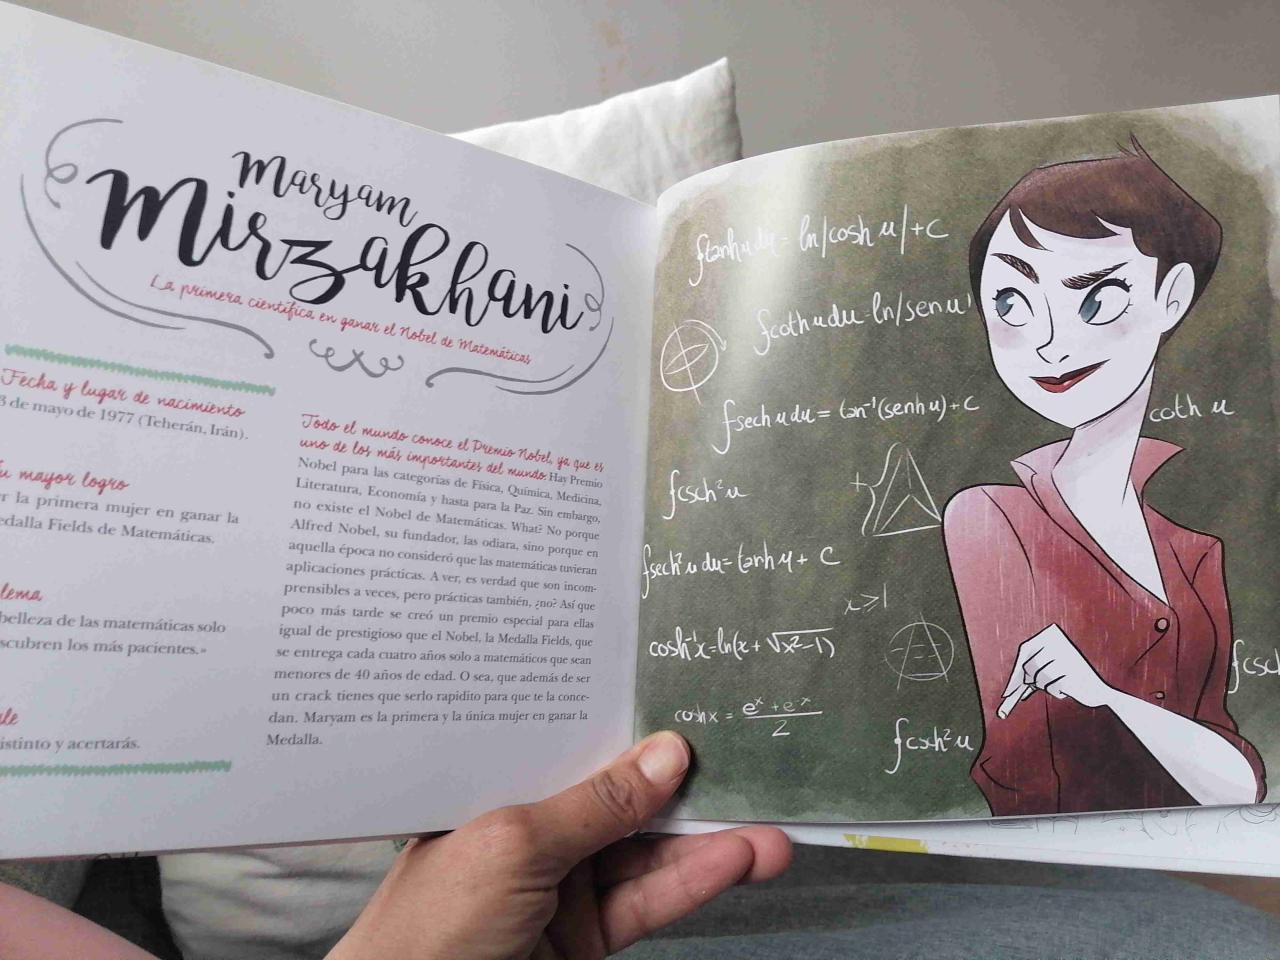 Maryam
Mirzakhani
La primera científica en ganar el Nobel de Matemáticas
Fecha y lugar de nacimiento
de mayo de 1977 (Teherán, Irán).
mayor logro
la primera mujer en ganar la
Fields de Matemáticas.
belleza de las matemáticas solo
los más pacientes.»
y acertarás.
Todo el mundo conoce el Premio Nobel, ya que es
uno de los más importantes del mundo. Hay Premio
Nobel para las categorías de Física, Química, Medicina,
Literatura, Economía y hasta para la Paz. Sin embargo,
no existe el Nobel de Matemáticas. What? No porque
Alfred Nobel, su fundador, las odiara, sino porque en
aquella época no consideró que las matemáticas tuvieran
aplicaciones prácticas. A ver, es verdad que son incom-
prensibles a veces, pero prácticas también, ¿no? Así que
poco más tarde se creó un premio especial para ellas
igual de prestigioso que el Nobel, la Medalla Fields, que
se entrega cada cuatro años solo a matemáticos que sean
menores de 40 años de edad. O sea, que además de ser
un crack tienes que serlo rapidito para que te la conce-
dan. Maryam es la primera y la única mujer en ganar la
Medalla.
∫tanh u du = ln|cosh u| + C
∫coth u du = ln|sen u
∫sech u du = tan⁻¹(senh u) + C
coth u
∫csch² u
∫sech² u du = tanh u + C
x ≥ 1
cosh⁻¹x = ln(x + √x²-1)
cosh x = eˣ + e⁻ˣ / 2
∫csch² u